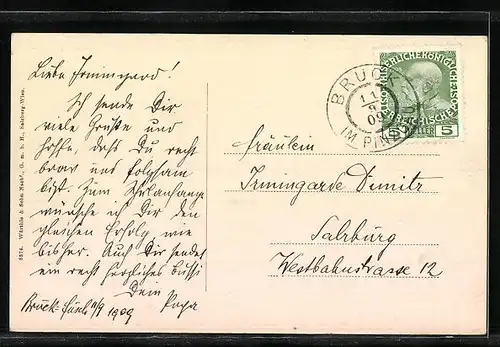 Liebe Irmingard!
Ich sende Dir
viele Grüße und
hoffe, daß Du recht
brav und folgsam
bist. Zum Schulanfange
wünsche ich Dir den
gleichen Erfolg wie
bisher. Auch Dir sendet
ein recht herzliches Bussi
Dein
Papa
Bruck-Fusch 11/9 1909
5574. Würthle & Sohn Nachf., G. m. b. H., Salzburg-Wien.
BRUCK
11
09
IM PINZ
5 HELLER 5
Fräulein
Irmingarde Dimitz
Salzburg
Westbahnstrasse 12